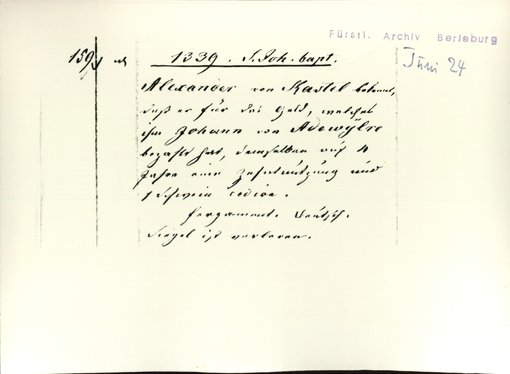 Fürstl. Archiv Berleburg
159
1339. S. Joh. bapt.
Juni 24
Alexander von Kastel bekennt,
daß er für das Geld, welches
ihm Johann von Adewylre
bezahlt hat, demselben auf 4
Jahre eine Zehntnutzung und
1 Schwein cedire.
Pergament. Deutsch.
Siegel ist verloren.